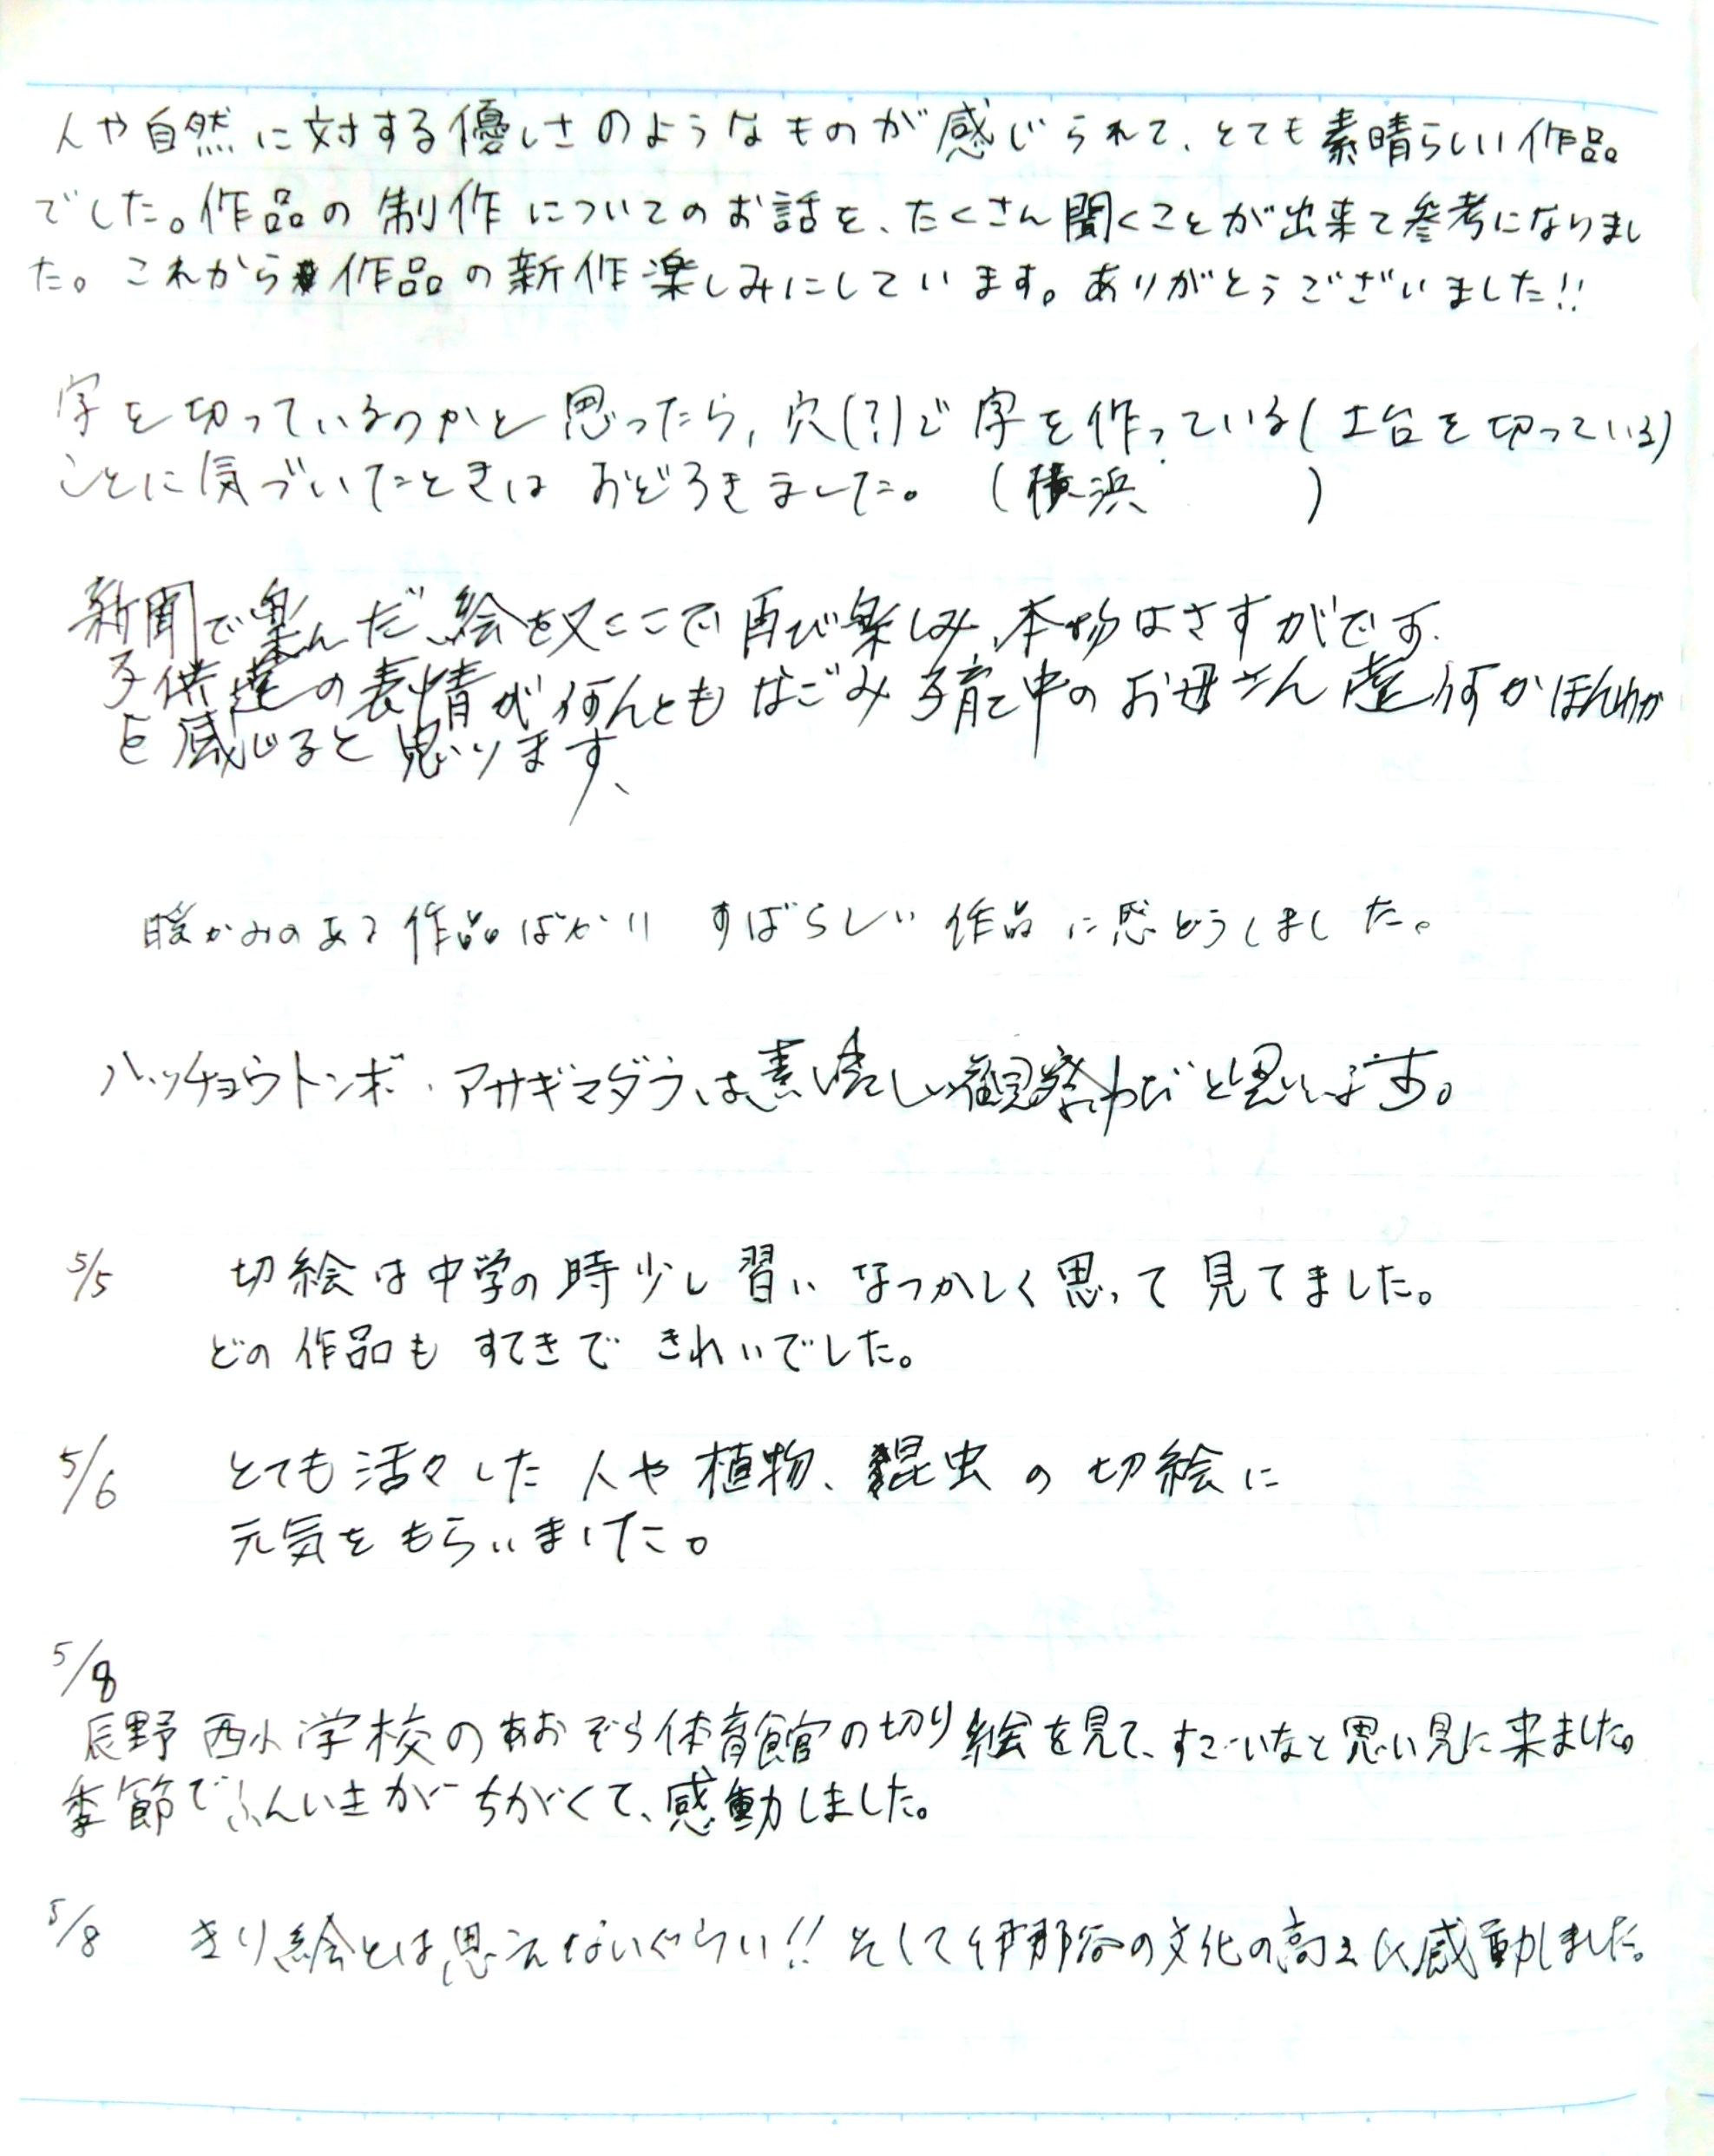 人や自然に対する優しさのようなものが感じられて、とても素晴らしい作品
でした。作品の制作についてのお話を、たくさん聞くことが出来て参考になりまし
た。これから作品の新作楽しみにしています。ありがとうございました!!
字を切っているのかと思ったら,穴(?)で字を作っている(土台を切っている)
ことに気づいたときはおどろきました。(横浜 )
新聞で楽んだ絵を又ここで再び楽しみ、本物はさすがです.
子供達の表情が何んともなごみ子育て中のお母さん達何かほんわか
を感じると思います、
暖かみのある作品ばかり すばらしい作品に感どうしました。
ハッチョウトンボ・アサギマダラは素晴らしい観察わびと思います。
5/5 切絵は中学の時少し習い なつかしく思って見てました。
どの作品も すてきで きれいでした。
5/6 とても活々した 人や植物、昆虫の切絵に
元気をもらいました。
5/8
辰野西小学校のあおぞら体育館の切り絵を見て、すごいなと思い見に来ました。
季節でふんいきがちがくて、感動しました。
5/8 きり絵とは思えないぐらい!!そして伊那谷の文化の高さに感動しました。